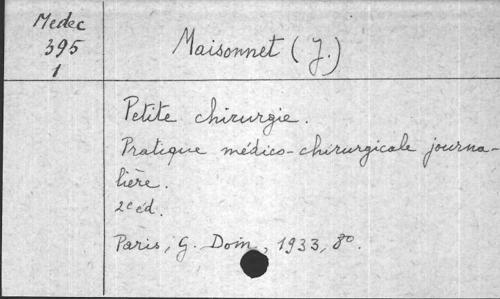 Medec
395
1
Maisonnet (J.)
Petite chirurgie.
Pratique médico-chirurgicale journa-
lière.
2e éd.
Paris, G. Doin, 1933, 8o.